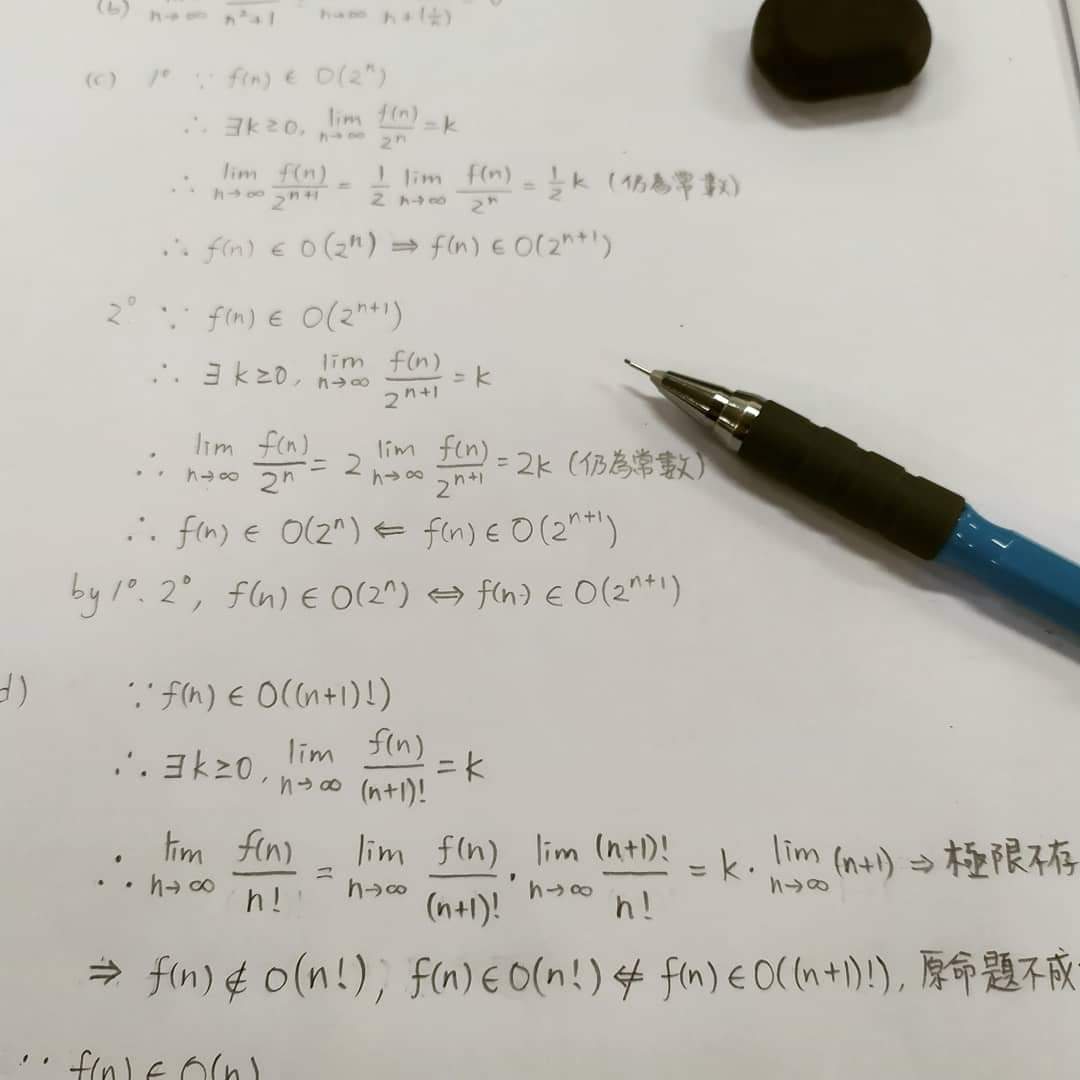 (b) lim n→∞ n²+1 lim n→∞ n+(1/n)
(c) 1° ∵ f(n) ∈ O(2ⁿ)
∴ ∃k≥0, lim n→∞ f(n)/2ⁿ = k
∴ lim n→∞ f(n)/2ⁿ⁺¹ = 1/2 lim n→∞ f(n)/2ⁿ = 1/2 k (仍為常數)
∴ f(n) ∈ O(2ⁿ) ⇒ f(n) ∈ O(2ⁿ⁺¹)
2° ∵ f(n) ∈ O(2ⁿ⁺¹)
∴ ∃ k≥0, lim n→∞ f(n)/2ⁿ⁺¹ = k
∴ lim n→∞ f(n)/2ⁿ = 2 lim n→∞ f(n)/2ⁿ⁺¹ = 2k (仍為常數)
∴ f(n) ∈ O(2ⁿ) ⇐ f(n) ∈ O(2ⁿ⁺¹)
by 1°. 2°, f(n) ∈ O(2ⁿ) ⇔ f(n) ∈ O(2ⁿ⁺¹)
d) ∵ f(n) ∈ O((n+1)!)
∴ ∃ k≥0, lim n→∞ f(n)/(n+1)! = k
∴ lim n→∞ f(n)/n! = lim n→∞ f(n)/(n+1)! · lim n→∞ (n+1)!/n! = k · lim n→∞ (n+1) ⇒ 極限不存
⇒ f(n) ∉ O(n!), f(n) ∈ O(n!) ⇍ f(n) ∈ O((n+1)!), 原命題不成
∵ f(n) ∈ O(n)